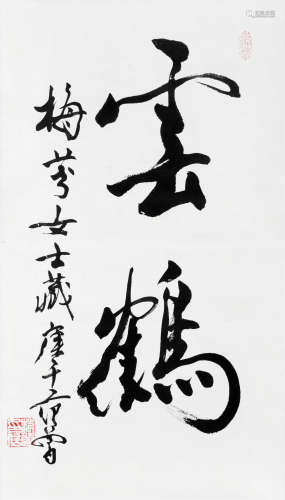 雲鶴
梅芳女士藏 庚午 范曾